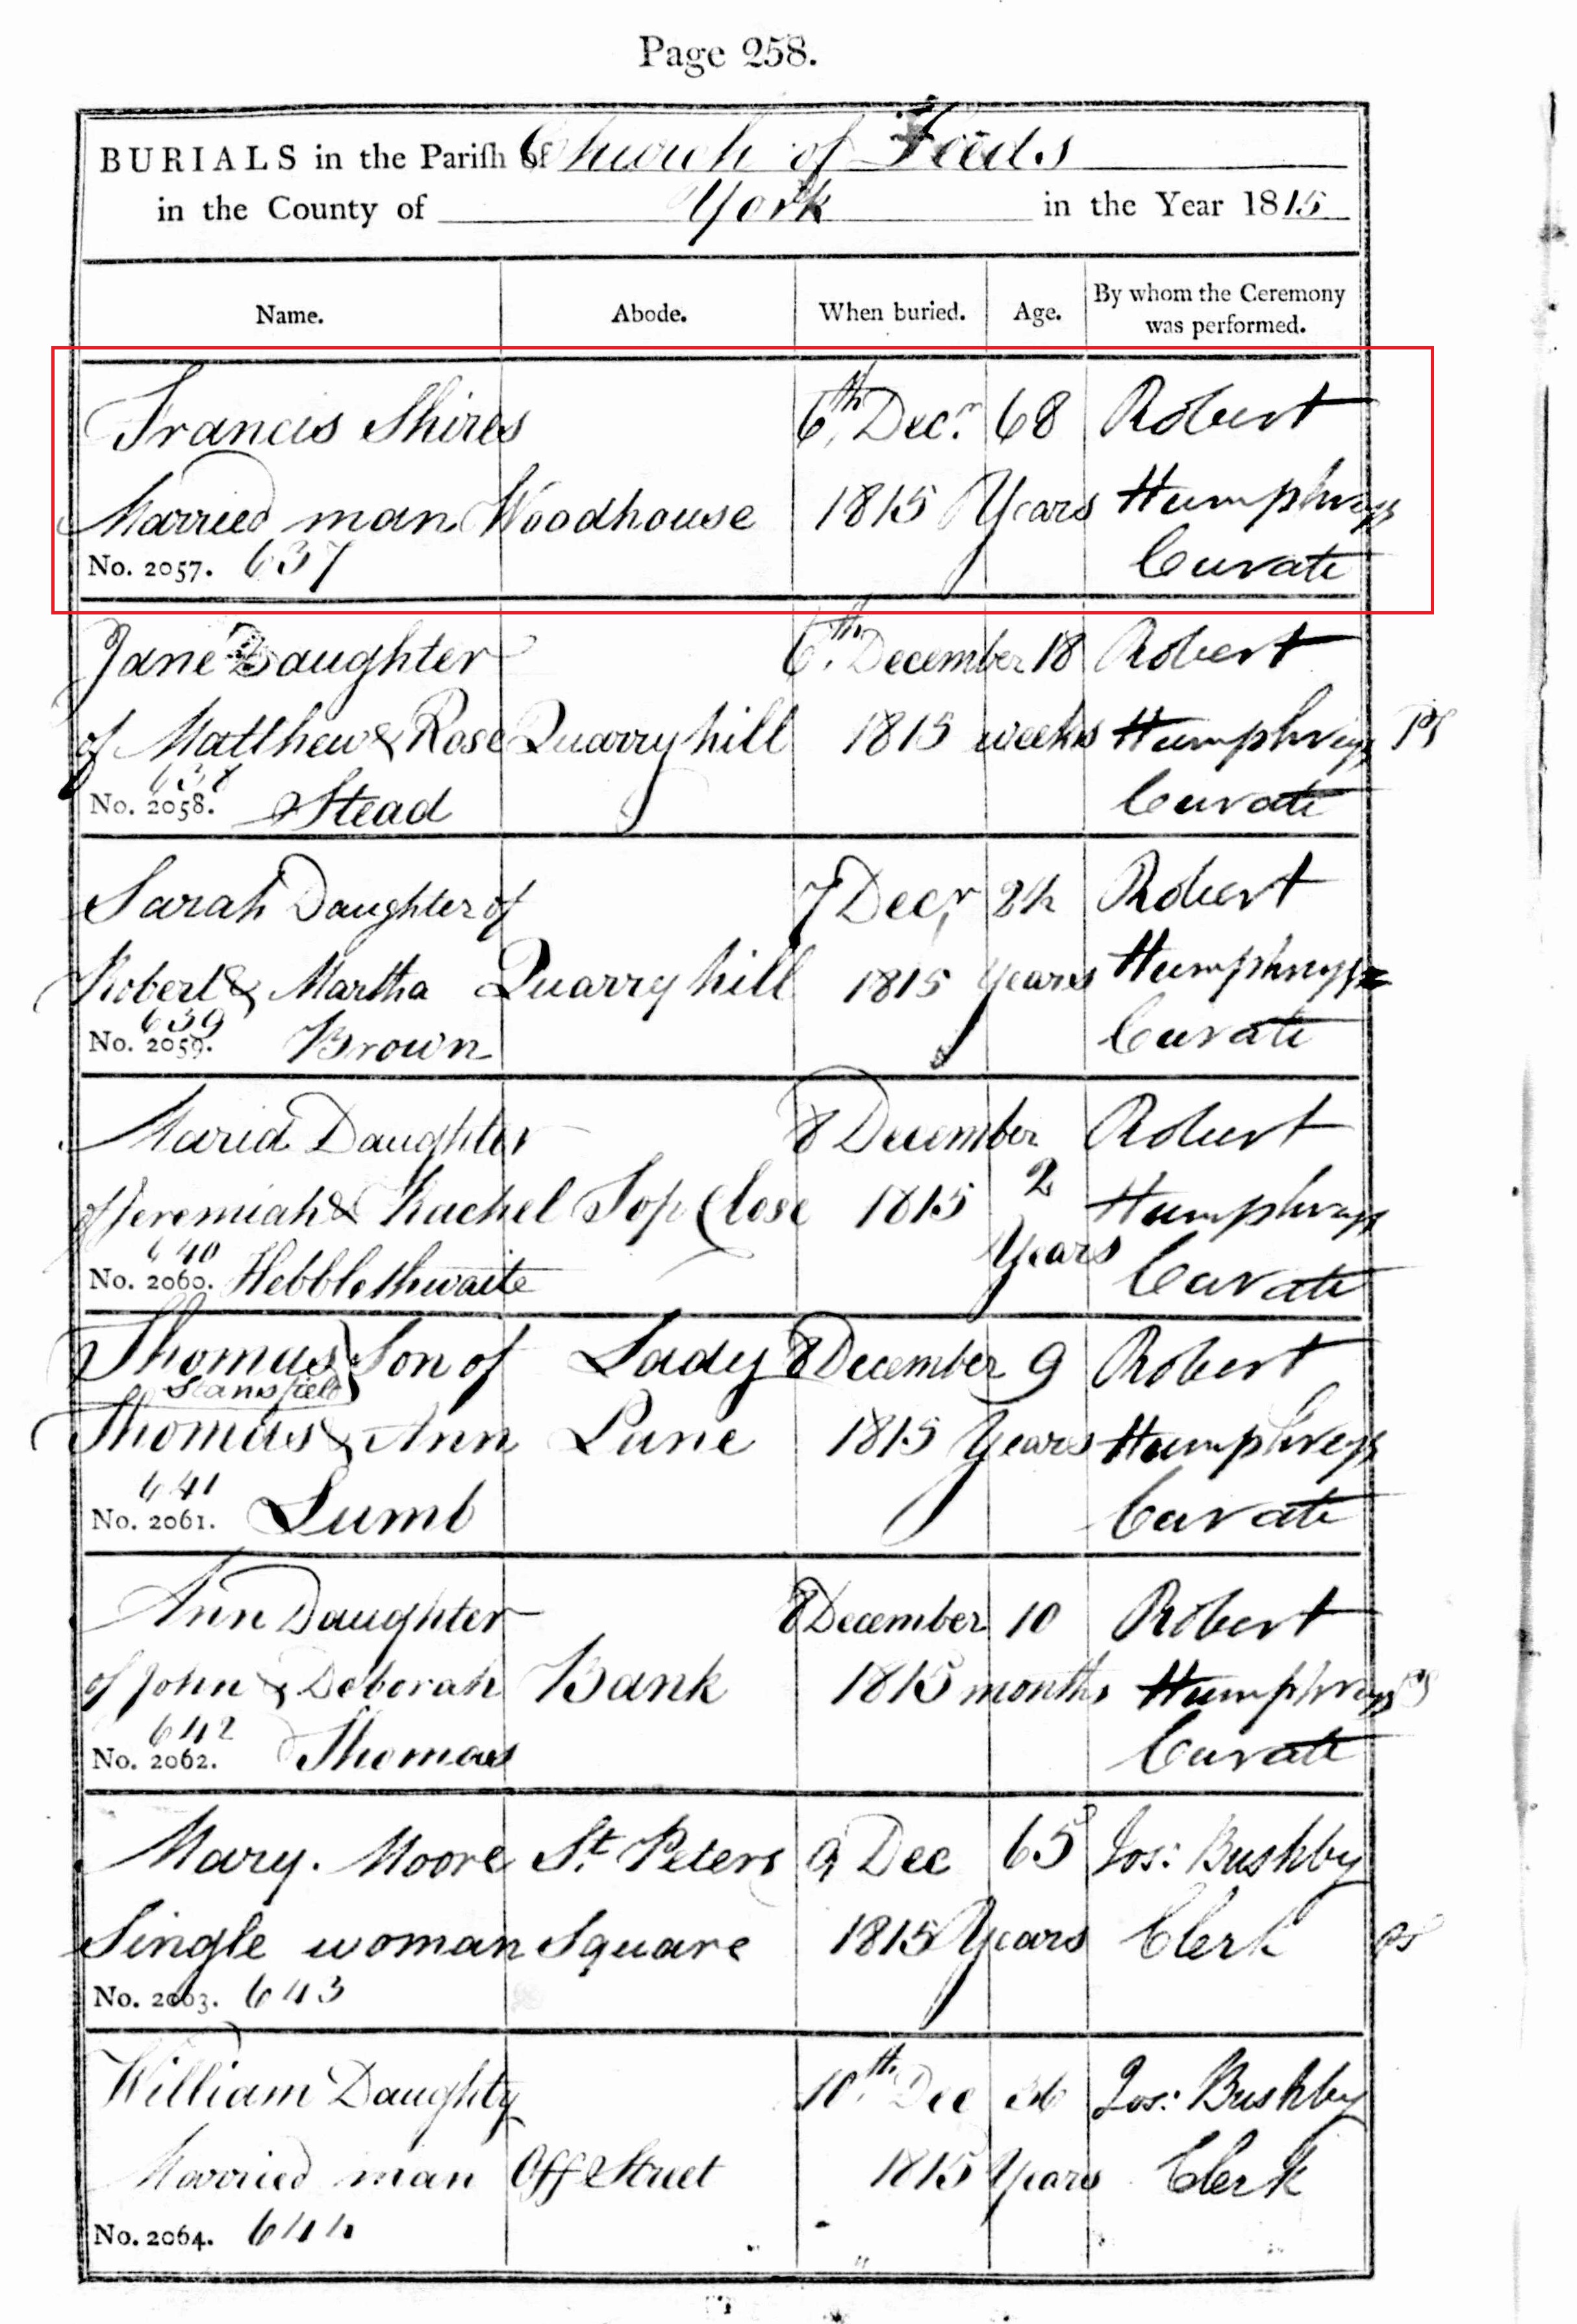 Page 258.
BURIALS in the Pariſh of Church of Leeds
in the County of York in the Year 1815
Name. Abode. When buried. Age. By whom the Ceremony was performed.
Francis Shires 6th Decr. 68 Robert
Married man Woodhouse 1815 Years Humphreys
No. 2057. 637 Curate
Jane Daughter 6th December 18 Robert
of Matthew & Rose Quarry hill 1815 weeks Humphreys
638
No. 2058. Stead Curate
Sarah Daughter of 7 Decr. 24 Robert
Robert & Martha Quarry hill 1815 years Humphreys
639
No. 2059. Brown Curate
Maria Daughter 8 December Robert
of Jeremiah & Rachel Top Close 1815 2 Years Humphreys
640
No. 2060. Hebblethwaite Curate
Thomas Son of Lady 8 December 9 Robert
Stansfield
Thomas & Ann Lane 1815 Years Humphreys
641
No. 2061. Lumb Curate
Ann Daughter 8 December 10 Robert
of John & Deborah Bank 1815 months Humphreys
642
No. 2062. Thomas Curate
Mary. Moore St. Peters 9 Dec 65 Jos: Bushby
Single woman Square 1815 Years Clerk
No. 2063. 643
William Daughty 10th. Dec 36 Jos: Bushby
Married man Off Street 1815 Years Clerk
No. 2064. 644